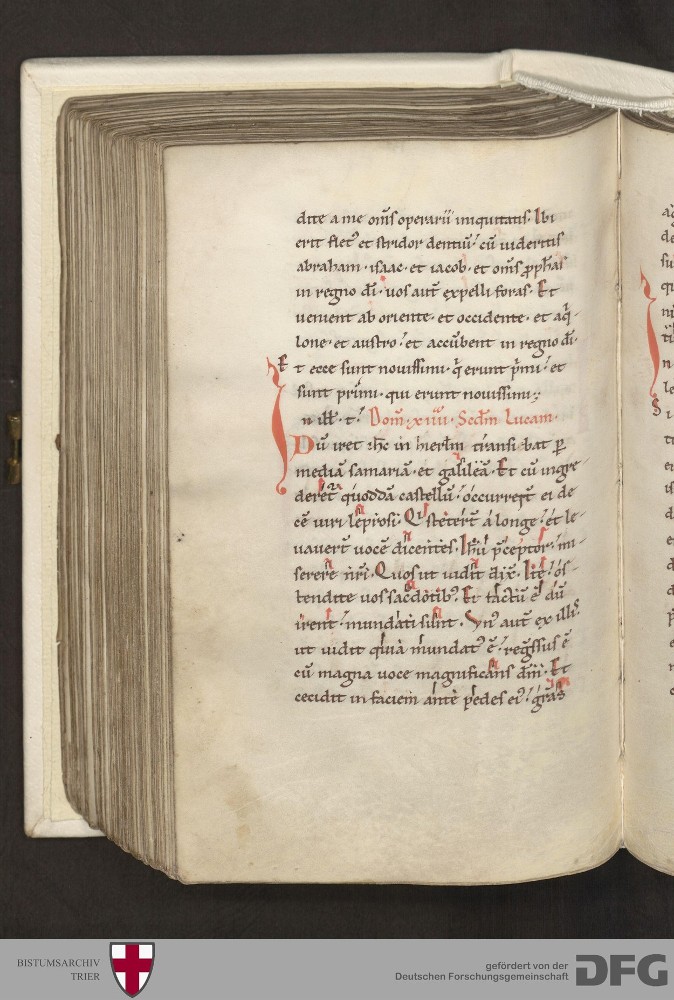 dite a me om̅s operarii iniquitatis. Ibi
erit flet᷒ et stridor dentiu̅. cu̅ uideritis
abraham. isaac. et iacob. et om̅s p̱ph̅as
in regno di̅. uos aut̅ expelli foras. Et
uenient ab oriente. et occidente. et aq̇-
lone. et austro. et accu̅bent in regno di̅.
Et ecce sunt nouissimi. q̇ erunt ṗmi. et
sunt primi. qui erunt nouissimi.
In ill̅. t. Dom̅. xiiii. Scd̅m Lucam.
Du̅ iret ih̅c in hierl̅m transibat p̱
media̅ samaria̅. et galilea̅. Et cu̅ ingre
deret᷑ quodda̅ castellu̅. occurrer̅t ei de
ce̅ uiri leprosi. Qui steter̅t a longe. et le-
vaver̅t uoce̅ dicentes. Ih̅u p̅ceptor. mi-
serere nr̅i. Quos ut vidit dix̅. Ite. os-
tendite uos sacdotib᷒. Et factu̅ e̅ du̅
irent. mundati sunt. Vn᷒ aut̅ ex ill̅s.
ut vidit quia mundat᷒ e̅. reg̅ssus e̅
cu̅ magna voce magnificans dm̅. Et
cecidit in faciem ante pedes ei᷒. gr̅as
BISTUMSARCHIV
TRIER
gefördert von der
Deutschen Forschungsgemeinschaft
DFG